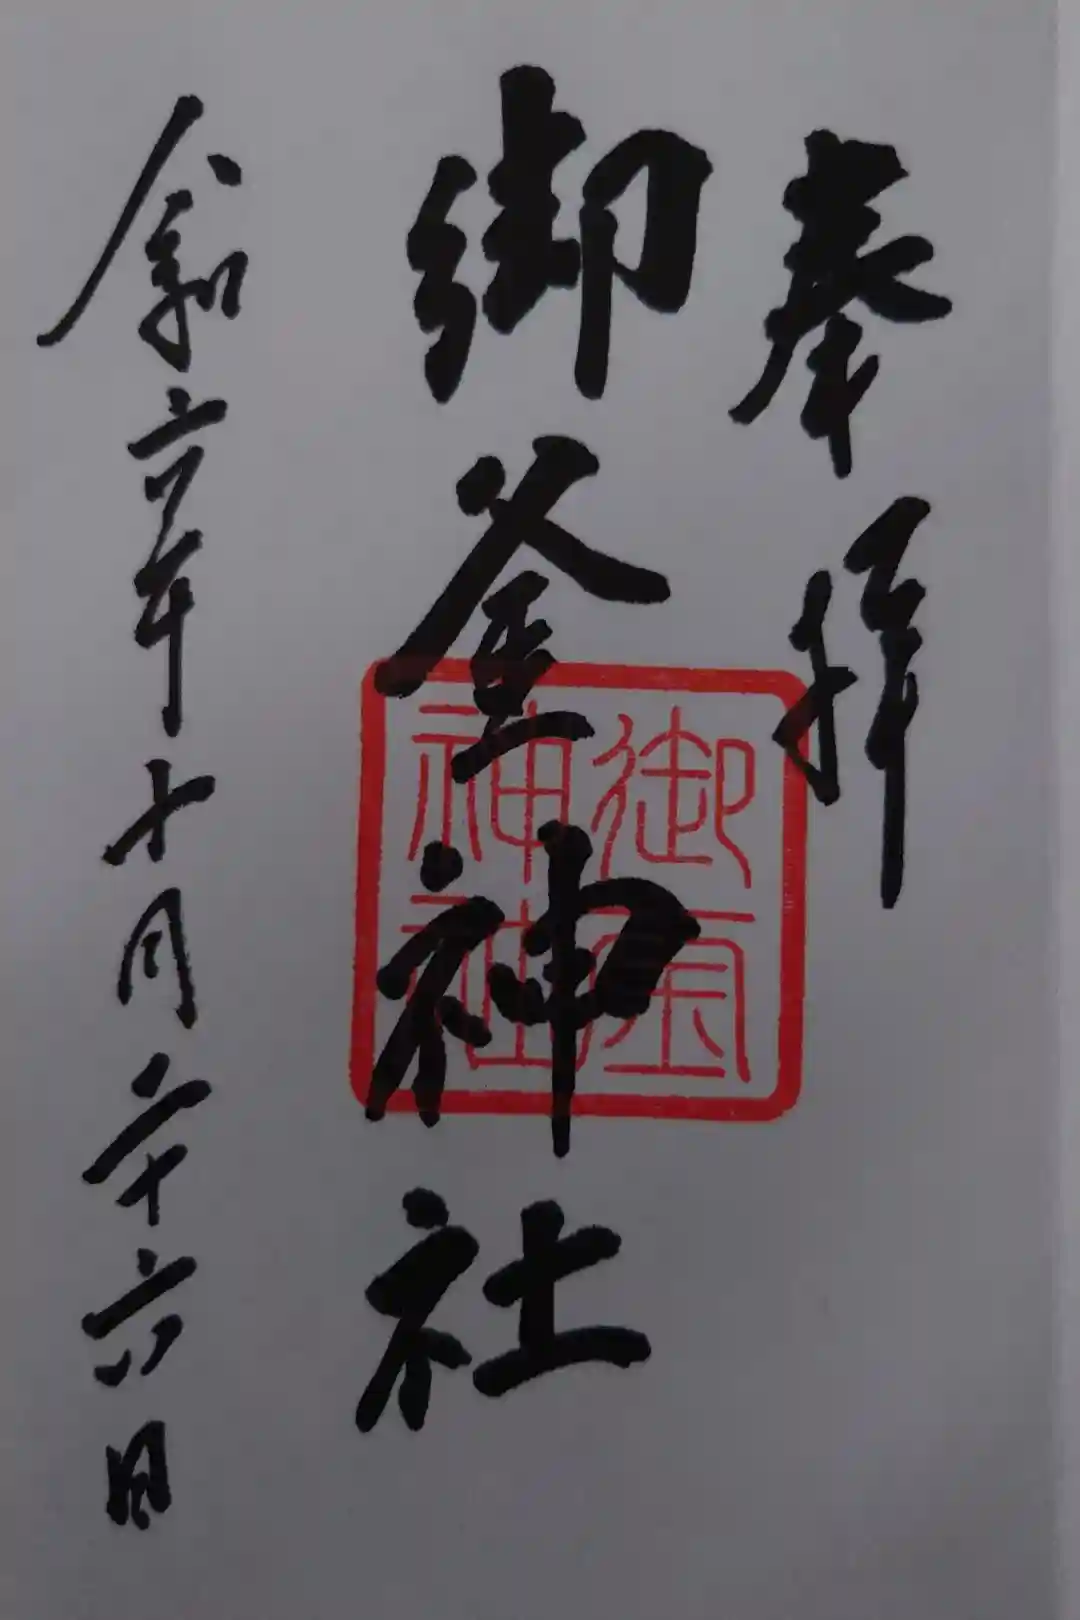 奉拝
御釜神社
御釜神社
令和六年十月二十六日